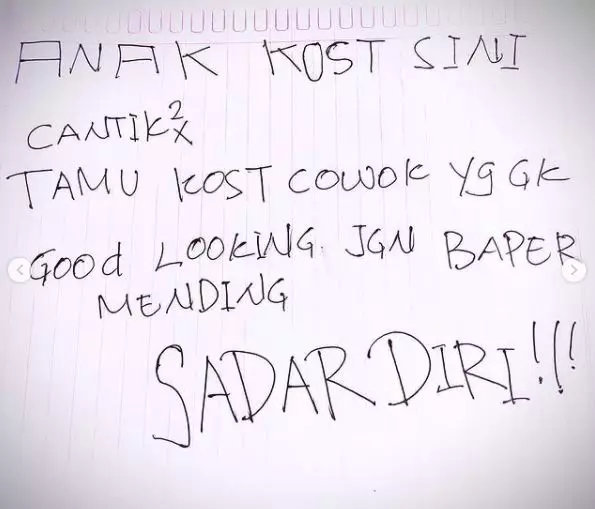 ANAK KOST SINI
CANTIK²X
TAMU KOST COWOK Yg GK
GOOd LOOKING. JGN BAPER
MENDING
SADAR DIRI!!!